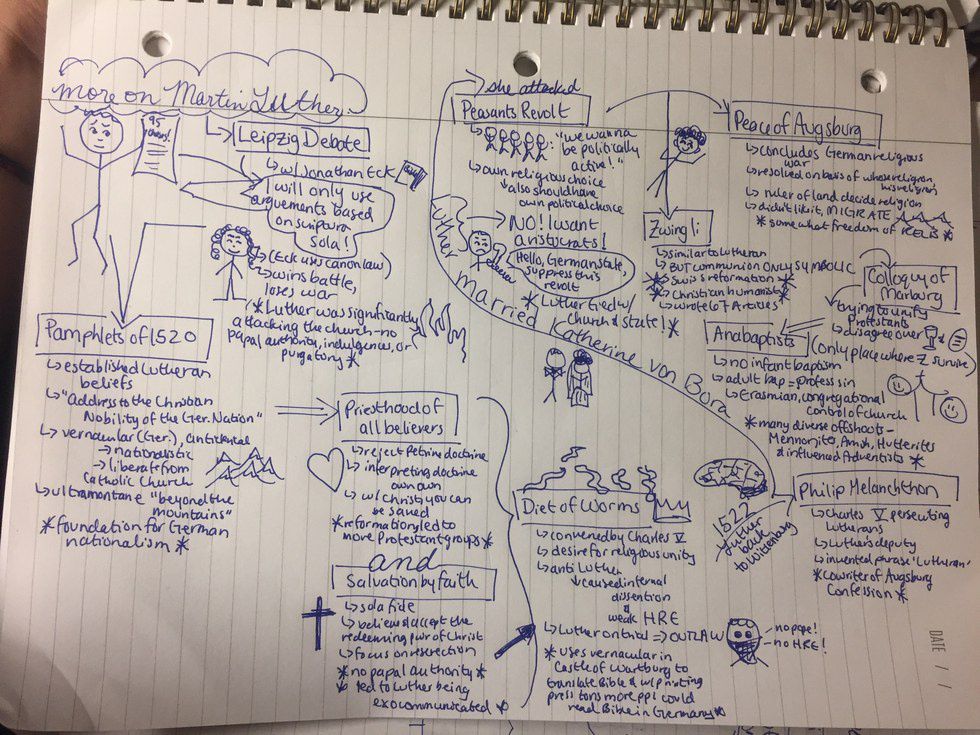 more on Martin Luther.
95
theses!
Leipzig Debate
↳ w/ Jonathan Eck
I will only
use
arguements based
on scriptura
Sola!
(Eck uses canon law)
↳ wins battle,
loses war
(*Luther was significantly
attacking the church - no
papal authority, indulgences, or
purgatory *
Pamphlets of 1520
↳ established Lutheran
beliefs
↳ "Address to the Christian
Nobility of the Ger. Nation"
↳ vernacular (Ger.), anticlerical
→ nationalistic
→ liberat from
Catholic Church
↳ ultramontane "beyond the
mountains"
*foundation for German
nationalism *
Priesthood of
all believers
↳ reject Petrine doctrine
↳ interpreting doctrine
own own
↳ w/ Christ you can
be saved
*reformation led to
more Protestant groups *
and
Salvation by faith
↳ sola fide
↳ believe & accept the
redeeming pwr of Christ
↳ focus on resurection
*no papal authority *
led to Luther being
excommunicated
she attacked
Peasants Revolt
: "we wanna
be politically
active!"
↳ own religious choice
↳ also should have
own political choice
→ NO! I want
aristocrats!
Hello, German state,
suppress this
revolt
* Luther tied w/
Church & state! *
Luther married Katherine von Bora
Diet of Worms
↳ convened by Charles V
↳ desire for religious unity
↳ anti Luther
↓ caused internal
dissention
&
weak HRE
↳ Luther on trial => OUTLAW
* uses vernacular in
Castle of Wartburg to
translate Bible & w/ printing
press tons more ppl could
read Bible in Germany *
1522
Luther
back
to Wittenburg
- no pope!
- no HRE!
Zwingli
↳ similar to Lutheran
↳ BUT communion ONLY SYMBOLIC
* Swiss reformation *
* Christian humanist *
↳ wrote 67 Articles
Peace of Augsburg
↳ concludes German religious
war
↳ resolved on basis of whose region
his religion
↳ ruler of land decide religion
↳ didn't like it, MIGRATE
* somewhat freedom of RELIG *
Colloquy of
Marburg
↳ trying to unify
Protestants
↳ disagree over
(only place where Z survive)
Anabaptists
↳ no infant baptism
↳ adult bap = profess sin
↳ Erasmian, congregational
control of church
*many diverse offshoots -
Mennonite, Amish, Hutterites
& influenced Adventists *
Philip Melanchthon
↳ Charles V persecuting
Lutherans
↳ Luther's deputy
↳ invented phrase 'Lutheran'
*cowriter of Augsburg
Confession *
DATE / /